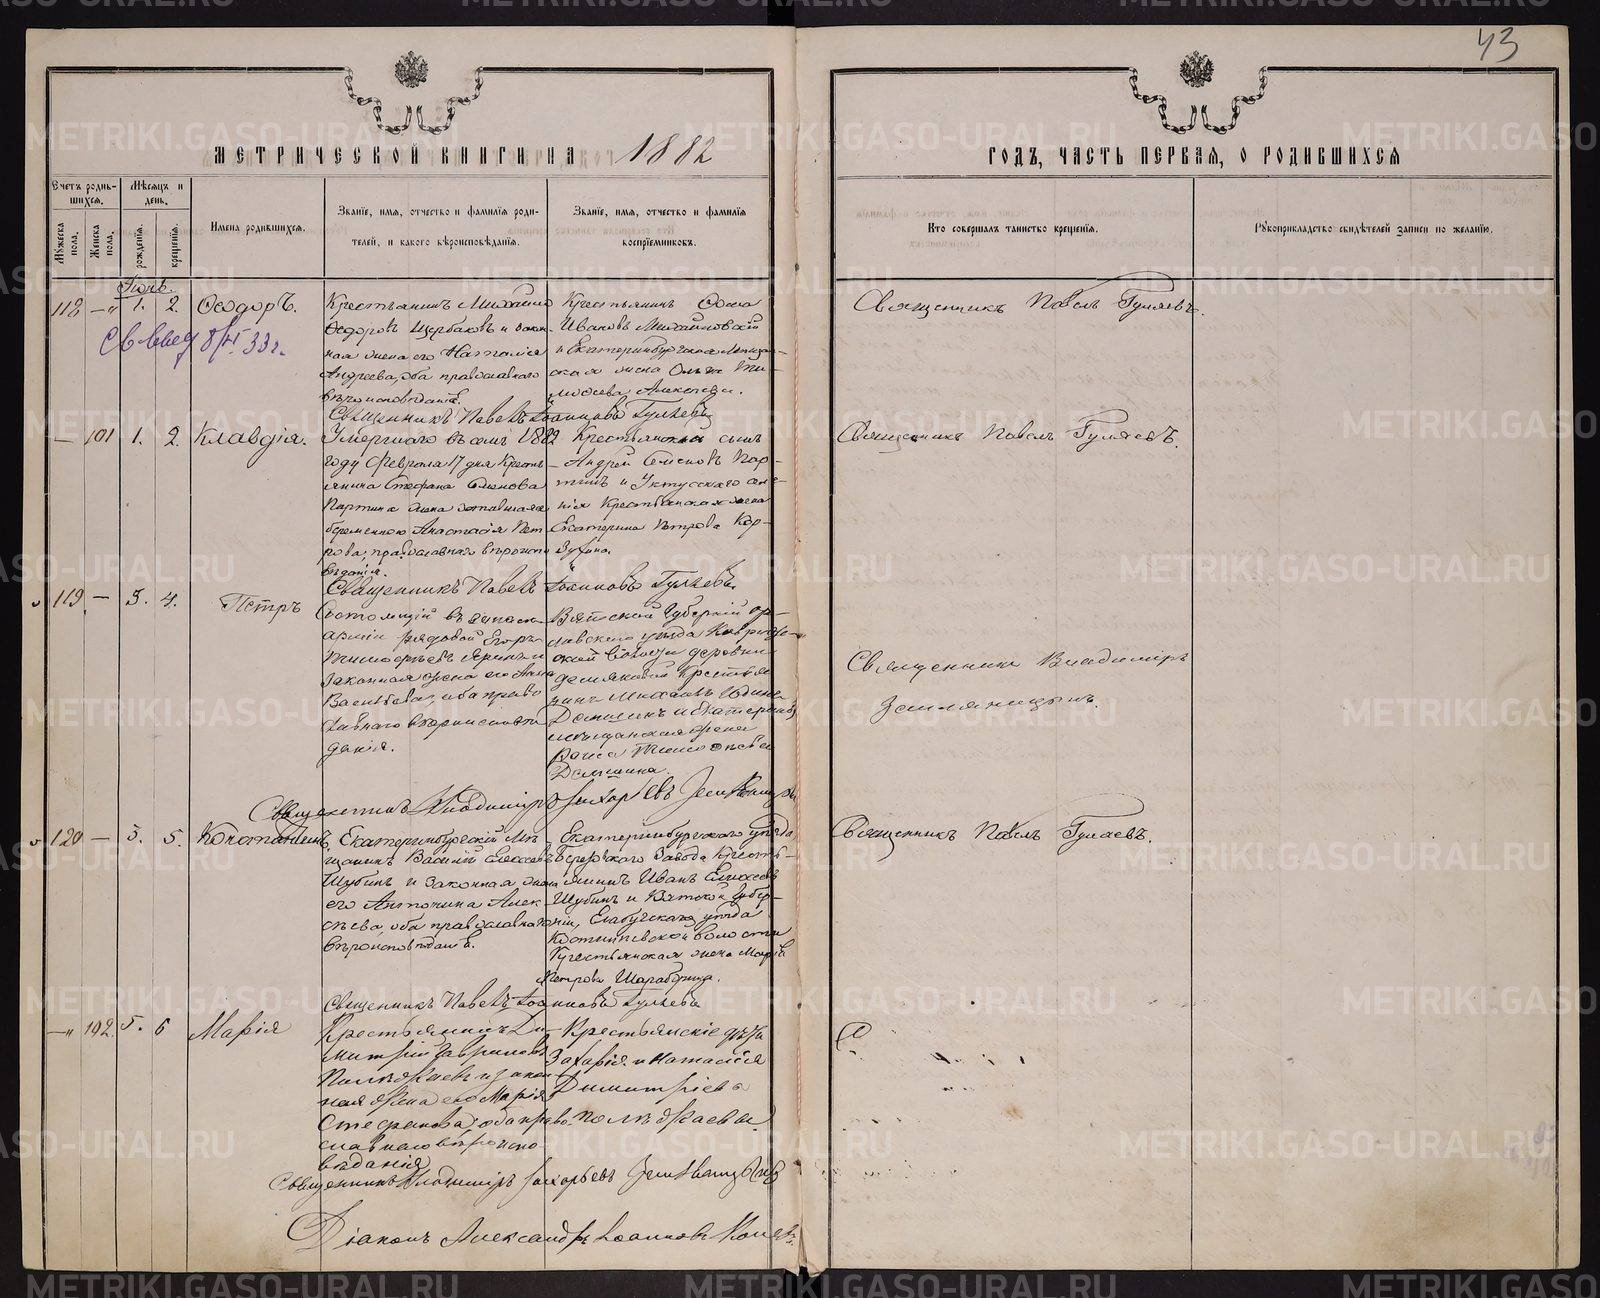 43
МЕТРИЧЕСКОЙ КНИГИ НА 1882
ГОДЪ, ЧАСТЬ ПЕРВАЯ, О РОДИВШИХСЯ
Счетъ родив-
шихся.
Мѣсяцъ и
день.
Мужеска
пола.
Женска
пола.
рожденія.
крещенія.
Имена родившихся.
Званіе, имя, отчество и фамилія роди-
телей, и какого вѣроисповѣданія.
Званіе, имя, отчество и фамилія
воспріемниковъ.
Кто совершалъ таинство крещенія.
Рукоприкладство свидѣтелей записи по желанію.
118 1. 2. Ѳеодоръ.
Крестьянинъ Михаилъ
Ѳедоровъ Щербаковъ и закон-
ная жена его Наталія
Андреева, оба православнаго
вѣроисповѣданія.
Крестьянинъ Ѳома
Ивановъ Михайловскій
и Екатеринбургская мѣщан-
ская жена Ольга Ти-
моѳеева
Священникъ Павелъ Гуляевъ.
Священникъ Павелъ Іоанновъ Гуляевъ
— 101 1. 2. Клавдія.
Умершаго въ семъ 1882
году Февраля 17 дня кресть-
янина Стефана Семенова
Партина жена оставшаяся
беременною Анастасія Пет-
рова, православнаго вѣроиспо-
вѣданія.
Крестьянскій сынъ
Андрей Семеновъ Пар-
тинъ и Уктусскаго селе-
нія Крестьянская жена
Екатерина Петрова Кор-
зухина.
Священникъ Павелъ Гуляевъ.
Священникъ Павелъ Іоанновъ Гуляевъ.
119 — 3. 4. Петръ
Состоящій въ запасѣ
арміи рядовой Егоръ
Тимофѣевъ
законная жена его Анна
Васильева, оба право-
славнаго вѣроисповѣ-
данія.
Вятской Губерніи Ор-
ловскаго уѣзда
ской Волости деревни
Крестья-
нинъ
Демшинъ и Екатеринб.
мѣщанская жена
Раиса Тимофеева
Демшина.
Священникъ Владиміръ
Земляницынъ.
Священникъ Владиміръ Захарьевъ Земляницынъ
120 — 3. 5. Константинъ.
Екатеринбургскій мѣ-
щанинъ Василій Елисеевъ
Шубинъ и законная жена
его Антонина Алек-
сѣева, оба православнаго
вѣроисповѣданія.
Екатеринбургскаго уѣзда,
Березовскаго завода Кресть-
янинъ Иванъ Елисеевъ
Шубинъ и Вятской Губер-
ніи, Елабужскаго уѣзда
волости
Крестьянская жена Марія
Петрова
Священникъ Павелъ Гуляевъ.
Священникъ Павелъ Іоанновъ Гуляевъ
102. 5. 6 Марія
Крестьянинъ Ди-
митрій Гавриловъ
Полежаевъ и закон-
ная жена его Марія
Стефанова, оба право-
славнаго вѣроиспо-
вѣданія
Крестьянскіе дѣти
Захарія и Наталія
Димитріевы
Полежаевы
Священникъ Владиміръ Захарьевъ Земляницынъ
Діаконъ Александръ Іоанновъ
METRIKI.GASO-URAL.RU